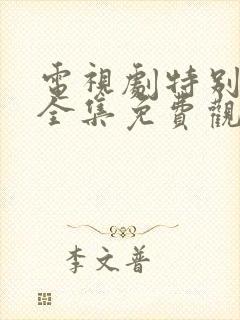 電視劇特别
全集免費觀
李文普